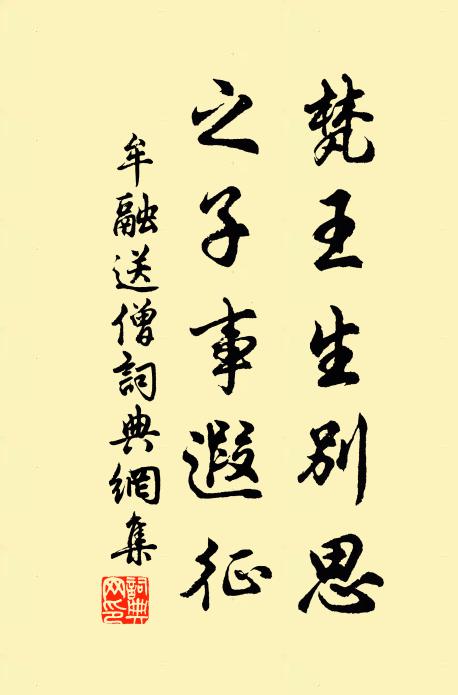 梵王生別思
之子事遐征
牟融送僧詞典網集
詞典
网印